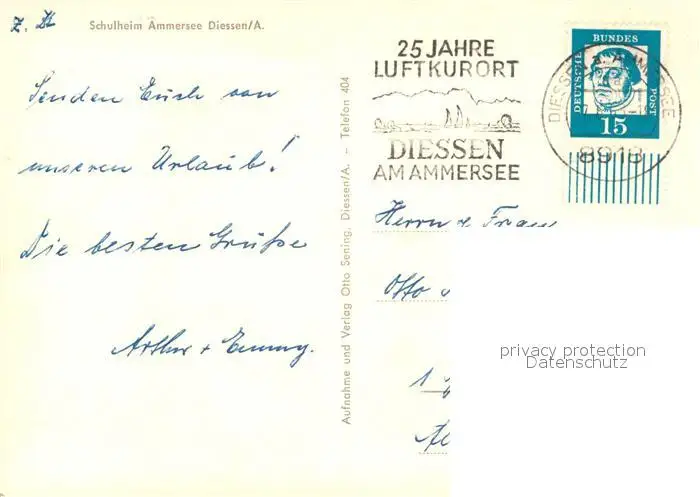 Z. Zt
Schulheim Ammersee Diessen/A.
Senden Euch von
unseren Urlaub!
Die besten Grüße
Arthur + Emmy.
Aufnahme und Verlag Otto Sening, Diessen/A. – Telefon 404
25 JAHRE
LUFTKURORT
DIESSEN
AM AMMERSEE
DEUTSCHE
BUNDES
POST
15
DIESSEN a. AMMERSEE
8918
Herrn u. Frau
Otto
1
privacy protection
Datenschutz